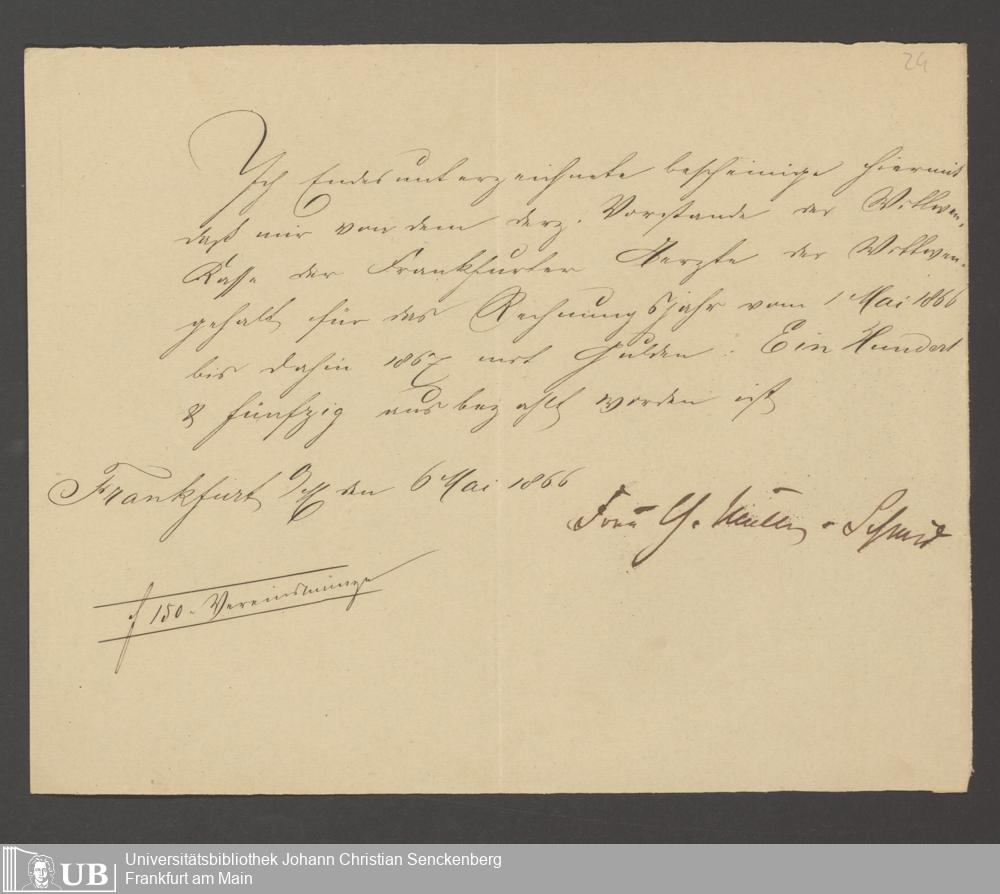 24
Ich Endesunterzeichnete bescheinige hiermit
daß mir von dem derz. Vorstande der Wittwen-
Kasse der Frankfurter Aerzte der Wittwen-
gehalt für das Rechnungsjahr vom 1 Mai 1866
bis dahin 1867 mit Gulden: Ein Hundert
& fünfzig ausbezahlt worden ist
Frankfurt a/M den 6 Mai 1866
Frau G. - Schmid
f 150 - Vereinsmünze
Universitätsbibliothek Johann Christian Senckenberg
Frankfurt am Main
UB